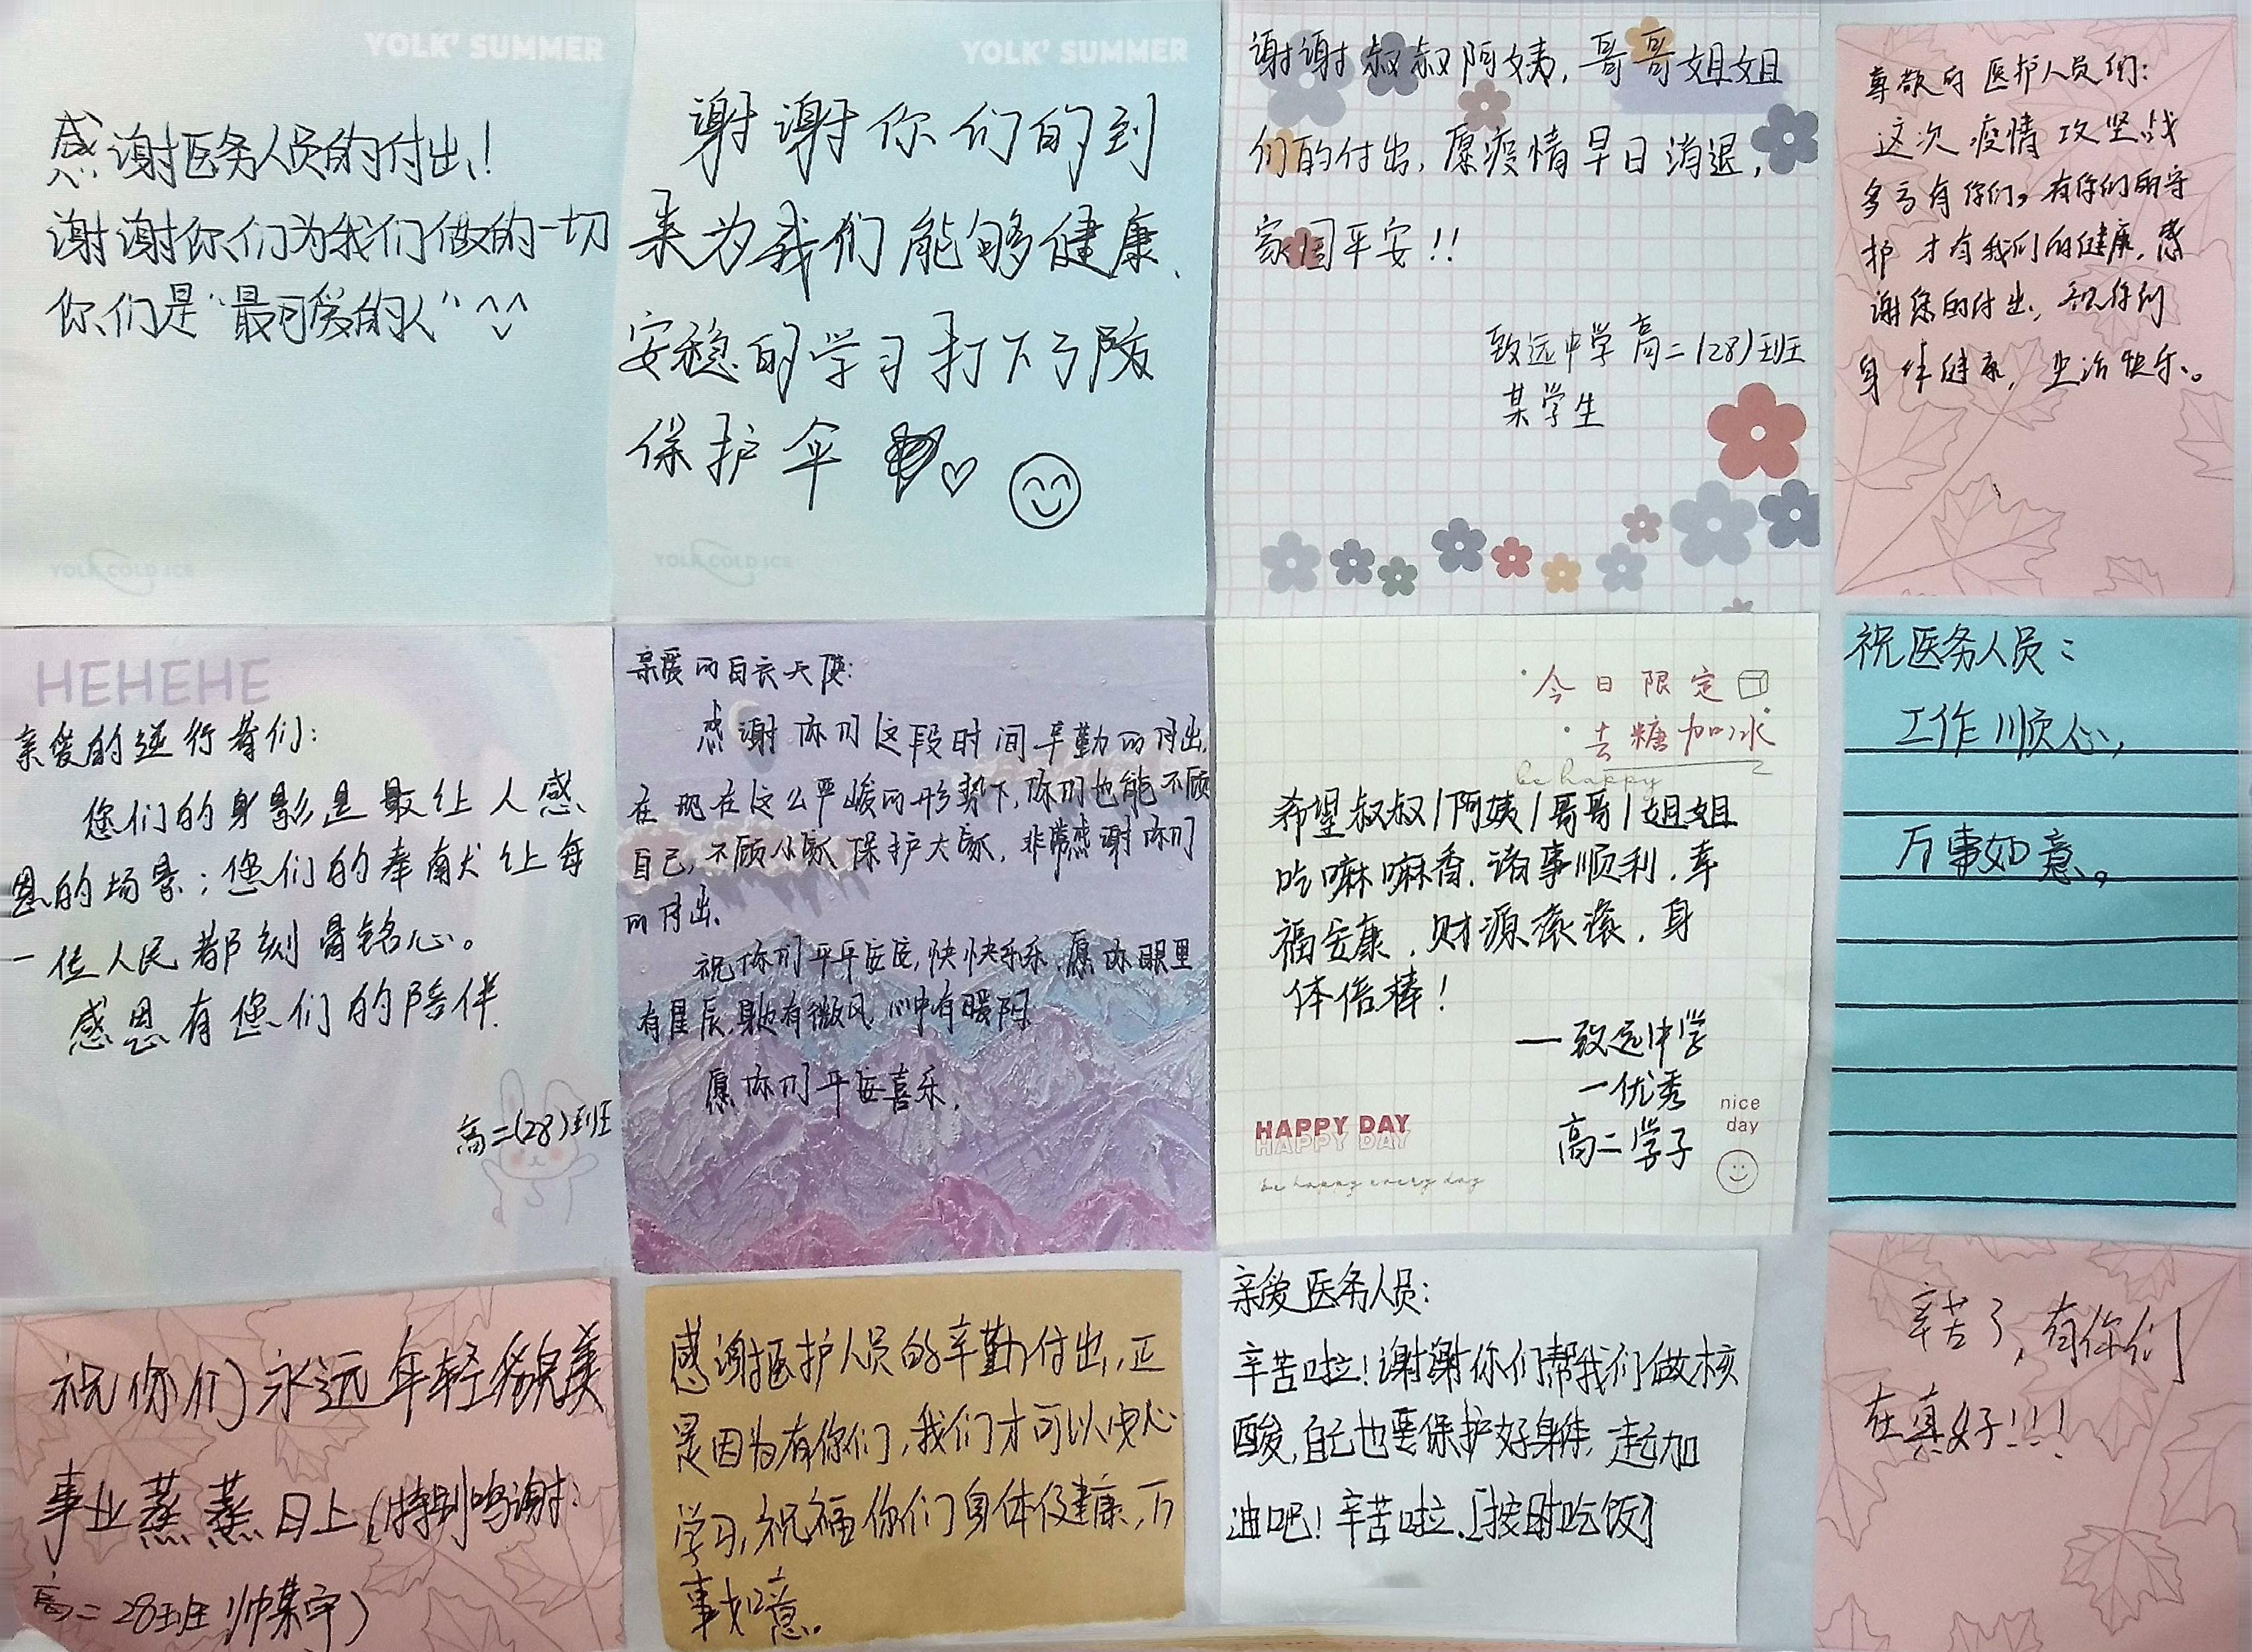 YOLK' SUMMER
感谢医务人员的付出!
谢谢你们为我们做的一切
你们是“最可爱的人”^^
YOLK COLD ICE
YOLK' SUMMER
谢谢你们的到
来为我们能够健康、
安稳的学习打下了防
保护伞
YOLK COLD ICE
谢谢叔叔阿姨,哥哥姐姐
们的付出,愿疫情早日消退,
家国平安!!
致远中学高二(28)班
某学生
尊敬的医护人员们:
这次疫情攻坚战
多亏有你们,有你们的守
护才有我们的健康,感
谢您的付出,祝你们
身体健康,生活快乐。
HEHEHE
亲爱的逆行者们:
您们的身影是最让人感
恩的场景;您们的奉献让每
一位人民都刻骨铭心。
感恩有您们的陪伴.
高二(28)班
亲爱的白衣天使:
感谢你们这段时间辛勤的付出,
在现在这么严峻的形势下,你们也能不顾
自己,不顾小家保护大家,非常感谢你们
的付出.
祝你们平平安安,快快乐乐,愿你眼里
有星辰,身边有微风,心中有暖阳
愿你们平安喜乐.
·今日限定
·去糖加冰
be happy
希望叔叔/阿姨/哥哥/姐姐
吃嘛嘛香.诸事顺利.幸
福安康.财源滚滚.身
体倍棒!
—致远中学
一优秀
高二学子
HAPPY DAY
HAPPY DAY
be happy every day
nice
day
祝医务人员:
工作顺心,
万事如意。
祝你们永远年轻貌美
事业蒸蒸日上(特别鸣谢:
高二28班帅某宇)
感谢医护人员的辛勤付出,正
是因为有你们,我们才可以安心
学习,祝福你们身体健康,万
事如意。
亲爱医务人员:
辛苦啦!谢谢你们帮我们做核
酸,自己也要保护好身体,一起加
油吧!辛苦啦.[按时吃饭]
辛苦了,有你们
在真好!!!